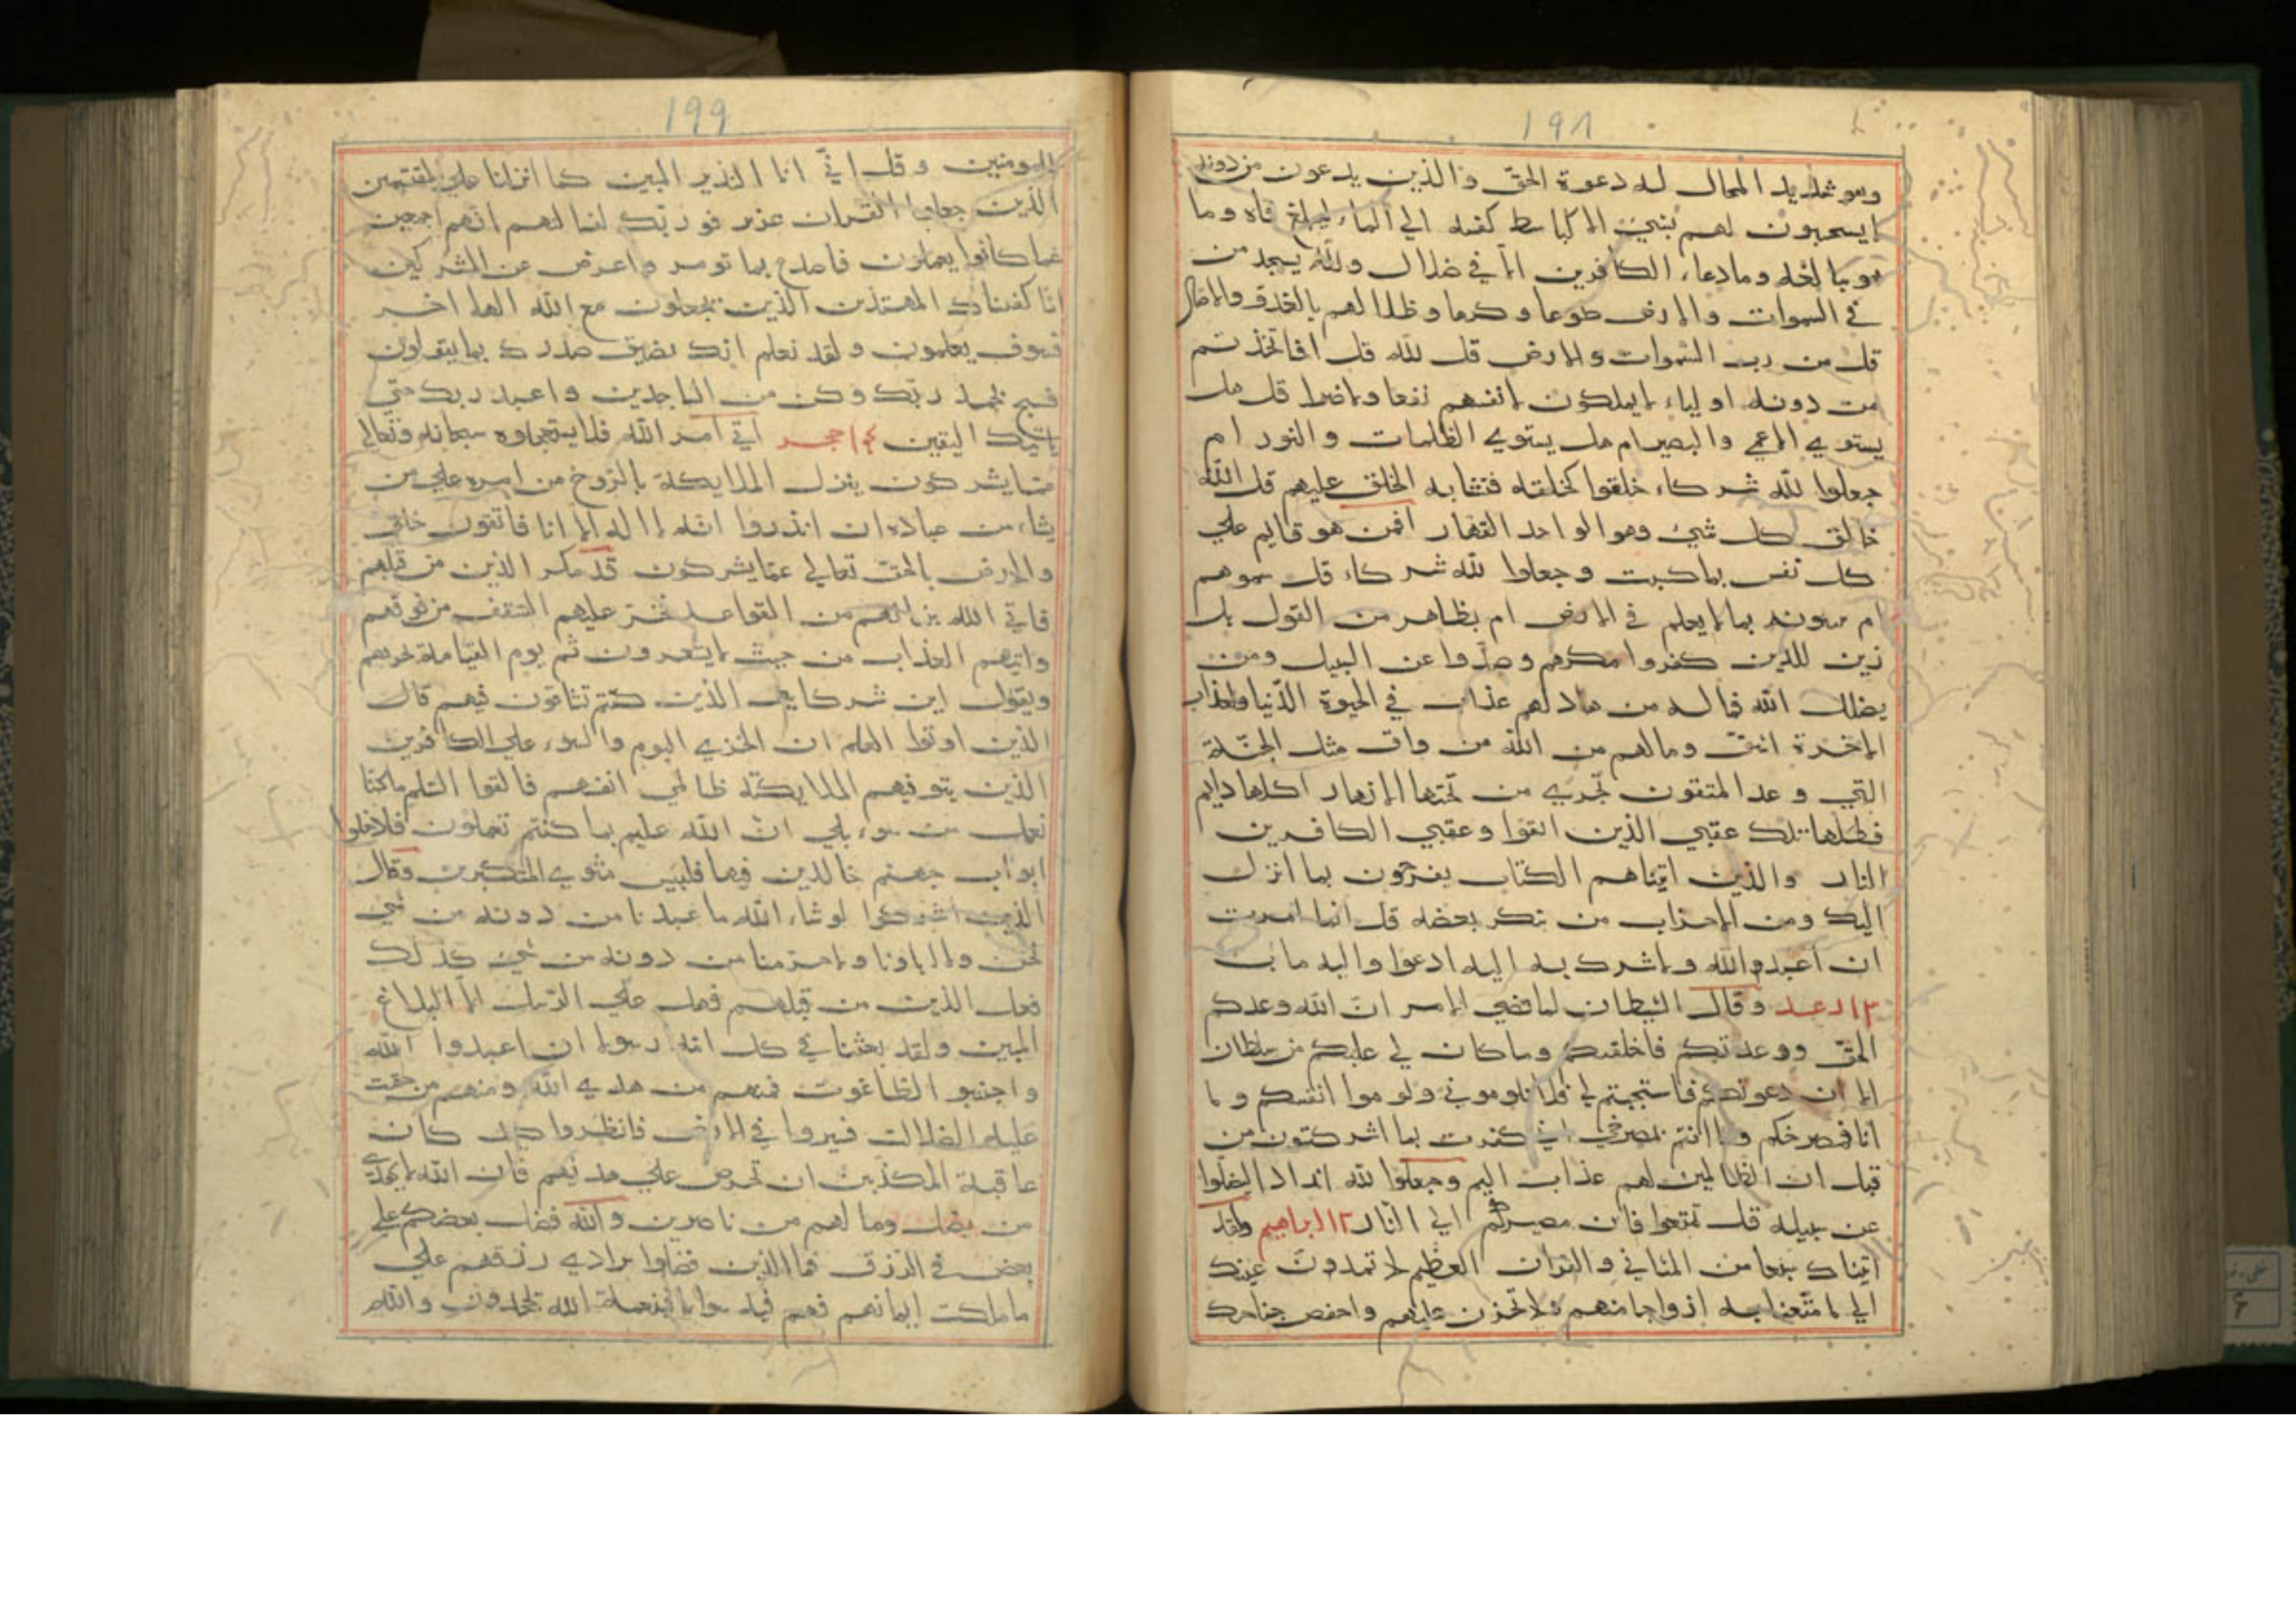 ١٩٨
وهو شديد المحال له دعوة الحق والذين يدعون من دونه
لا يستجيبون لهم بشئ الا كباسط كفيه الي الماء ليبلغ فاه وما
هو ببالغه وما دعاء الكافرين الا في ضلال ولله يسجد من
في السموات والارض طوعا وكرها وظلالهم بالغدو والاصال
قل من رب السموات والارض قل لله قل افاتخذتم
من دونه اولياء لا يملكون لانفسهم نفعا ولا ضرا قل هل
يستوي الاعمي والبصير ام هل يستوي الظلمات والنور ام
جعلوا لله شركاء خلقوا كخلقه فتشابه الخلق عليهم قل الله
خالق كل شئ وهو الواحد القهار افمن هو قايم علي
كل نفس بما كسبت وجعلوا لله شركاء قل سموهم
ام تنبونه بما لا يعلم في الارض ام بظاهر من القول بل
زين للذين كفروا مكرهم وصدوا عن السبيل ومن
يضلل الله فما له من هاد لهم عذاب في الحيوة الدنيا ولعذاب
الاخرة اشق وما لهم من الله من واق مثل الجنة
التي وعد المتقون تجري من تحتها الانهار اكلها دايم
وظلها تلك عقبي الذين اتقوا وعقبي الكافرين
النار والذين اتيناهم الكتاب يفرحون بما انزل
اليك ومن الاحزاب من ينكر بعضه قل انما امرت
ان اعبد والله ولا اشرك به اليه ادعوا واليه ماب
١٣ رعد وقال الشيطان لما قضي الامر ان الله وعدكم
الحق ووعدتكم فاخلفتكم وما كان لي عليكم من سلطان
الا ان دعوتكم فاستجبتم لي فلا تلوموني ولوموا انفسكم وما
انا بمصرخكم وما انتم بمصرخي اني كفرت بما اشركتمون من
قبل ان الظالمين لهم عذاب اليم وجعلوا لله اندادا ليضلوا
عن سبيله قل تمتعوا فان مصيركم الي النار ١٤ ابراهيم ولقد
اتيناك سبعا من المثاني والقران العظيم لا تمدون عينيك
الي ما متعنا به ازواجا منهم ولا تحزن عليهم واخفض جناحك
١٩٩
للمومنين وقل اني انا النذير المبين كما انزلنا علي المقتسمين
الذين جعلوا القران عضين فوربك لنسالنهم اجمعين
عما كانوا يعملون فاصدع بما تومر واعرض عن المشركين
انا كفيناك المستهزئين الذين يجعلون مع الله الها اخر
فسوف يعلمون ولقد نعلم انك يضيق صدرك بما يقولون
فسبح بحمد ربك وكن من الساجدين واعبد ربك حتي
ياتيك اليقين حجر اتي امر الله فلا تستعجلوه سبحانه وتعالي
عما يشركون ينزل الملايكة بالروح من امره علي من
يشاء من عباده ان انذروا انه لا اله الا انا فاتقون خلق
والارض بالحق تعالي عما يشركون قد مكر الذين من قبلهم
فاتي الله بنيانهم من القواعد فخر عليهم السقف من فوقهم
واتيهم العذاب من حيث لا يشعرون ثم يوم القيامة يخزيهم
ويقول اين شركايي الذين كنتم تشاقون فيهم قال
الذين اوتوا العلم ان الخزي اليوم والسوء علي الكافرين
الذين يتوفيهم الملايكة ظالمي انفسهم فالقوا السلم ما كنا
نعمل من سوء بلي ان الله عليم بما كنتم تعملون فادخلوا
ابواب جهنم خالدين فيها فلبيس مثوي المتكبرين وقال
الذين اشركوا لو شاء الله ما عبدنا من دونه من شئ
نحن ولا اباونا ولا حرمنا من دونه من شئ كذلك
فعل الذين من قبلهم فهل علي الرسل الا البلاغ
المبين ولقد بعثنا في كل امة رسولا ان اعبدوا الله
واجتنبو الطاغوت فمنهم من هدي الله ومنهم من حقت
عليه الضلالت فسيروا في الارض فانظروا كيف كان
عاقبة المكذبين ان تحرص علي هديهم فان الله لا يهدي
من يضل وما لهم من ناصرين والله فضل بعضكم علي
بعض في الرزق فما الذين فضلوا برادي رزقهم علي
ما ملكت ايمانهم فهم فيه سواء افبنعمة الله يجحدون والله